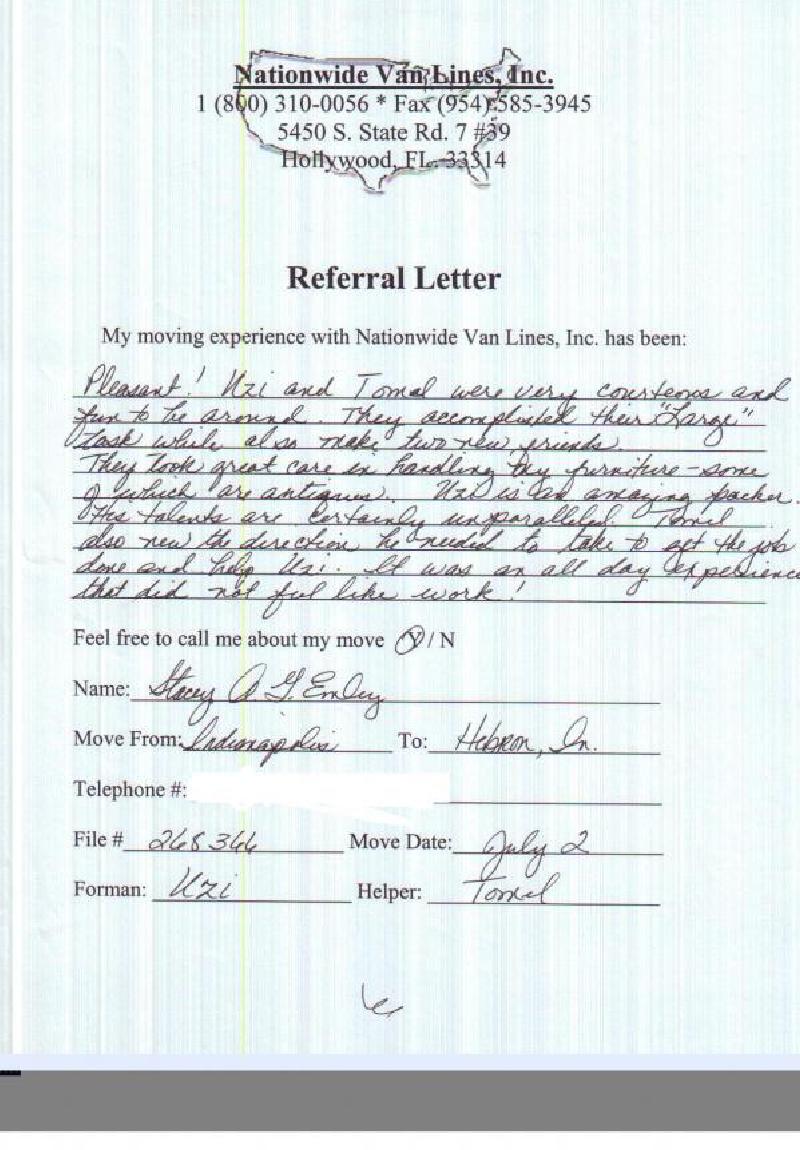 Nationwide Van Lines, Inc.
1 (800) 310-0056 * Fax (954) 585-3945
5450 S. State Rd. 7 #39
Hollywood, FL. 33314
Referral Letter
My moving experience with Nationwide Van Lines, Inc. has been:
Pleasant! Uzi and Tomel were very courteous and
fun to be around. They accomplished their "Large"
task while also make two new friends.
They took great care in handling my furniture - some
of which are antiques. Uzi is an amazing packer.
His talents are certainly unparalleled. Tomel
also new the direction he needed to take to get the job
done and help Uzi. It was an all day experience
that did not feel like work!
Feel free to call me about my move Y / N
Name: Stacey A. G. Emley
Move From: Indianapolis To: Hebron, In.
Telephone #:
File # 268366 Move Date: July 2
Forman: Uzi Helper: Tomel